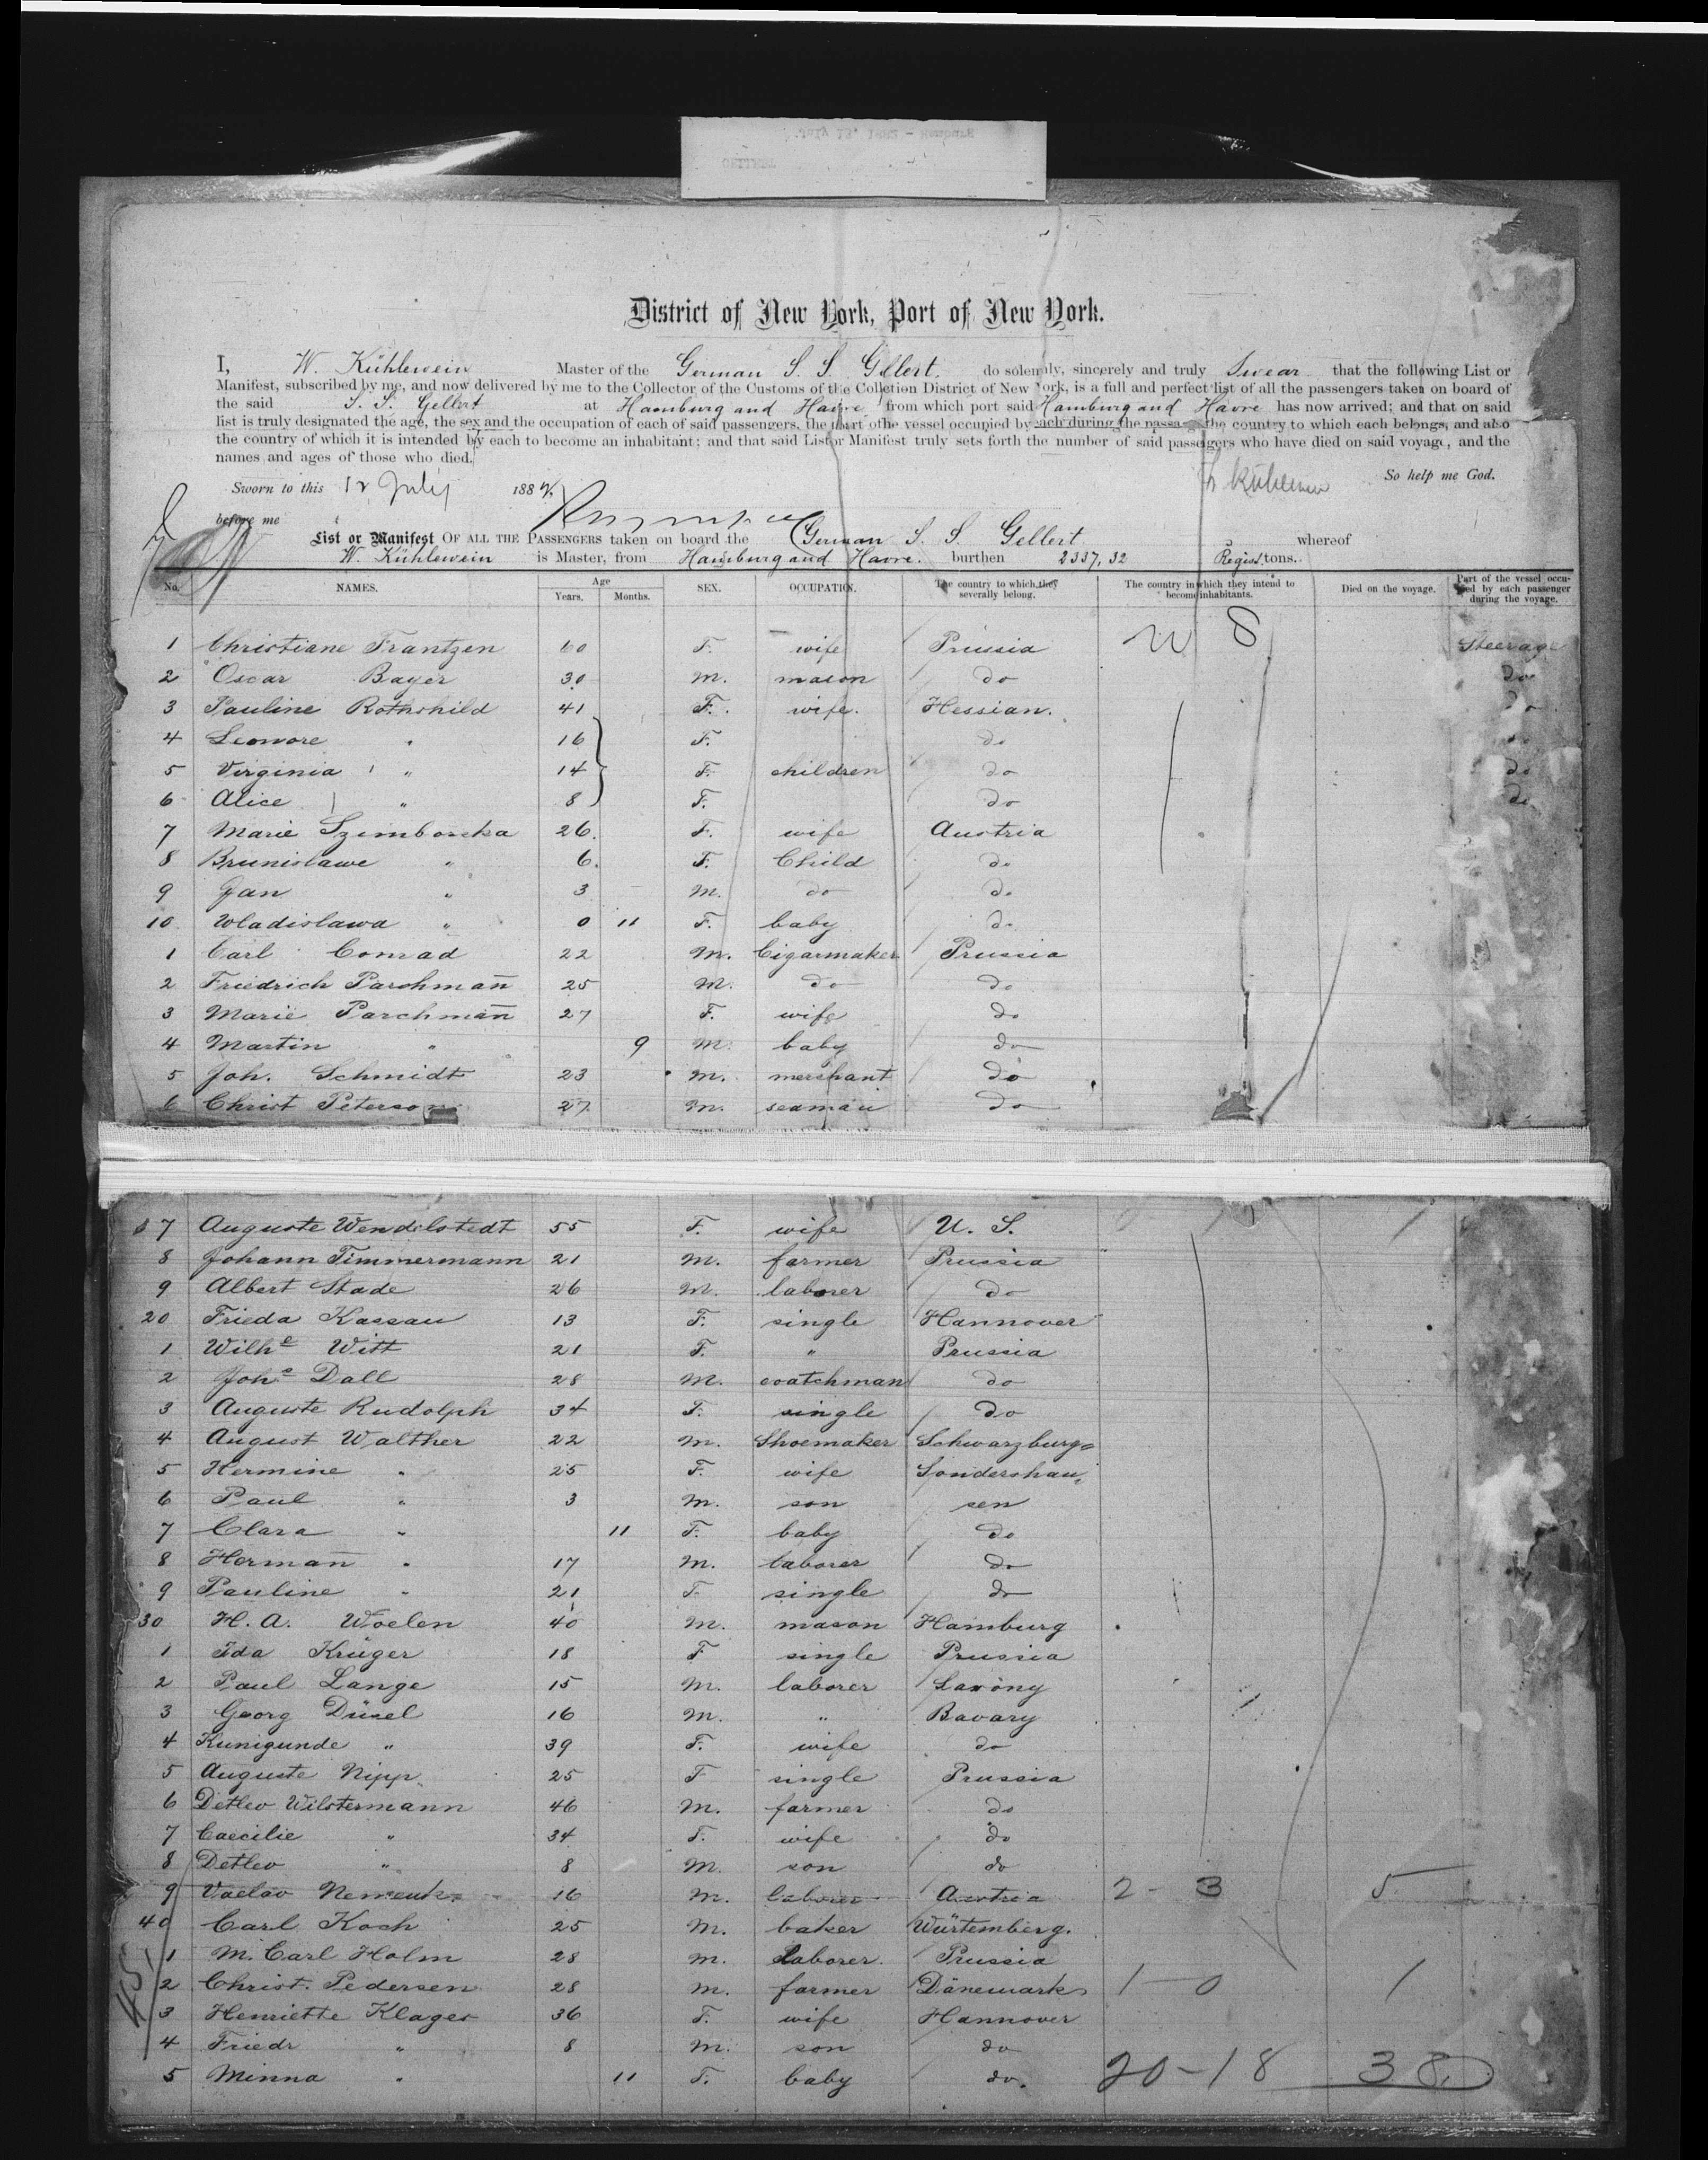 District of New York, Port of New York.
I, W. Kühlewein Master of the German S. S. Gellert. do solemnly, sincerely and truly Swear that the following List or
Manifest, subscribed by me, and now delivered by me to the Collector of the Customs of the Colletion District of New York, is a full and perfect list of all the passengers taken on board of
the said S. S. Gellert at Hamburg and Havre from which port said Hamburg and Havre has now arrived; and that on said
list is truly designated the age, the sex and the occupation of each of said passengers, the part of the vessel occupied by each during the passage the country to which each belongs, and also
the country of which it is intended by each to become an inhabitant; and that said List or Manifest truly sets forth the number of said passengers who have died on said voyage, and the
names and ages of those who died.
So help me God.
Sworn to this 12 July 188
before me
List or Manifest OF ALL THE PASSENGERS taken on board the German S. S. Gellert whereof
W. Kühlewein is Master, from Hamburg and Havre. burthen 2337,32 Regist. tons.
No. NAMES. Age Years. Months. SEX. OCCUPATION. The country to which they severally belong. The country in which they intend to become inhabitants. Died on the voyage. Part of the vessel occupied by each passenger during the voyage.
1 Christiane Frantzen 60 F. wife Prussia Steerage
2 Oscar Bayer 30 m. mason do do
3 Pauline Rothshild 41 F. wife. Hessian. do
4 Leonore " 16 F. do do
5 Virginia " 14 F. children do do
6 Alice " 8 F. do do
7 Marie Szimborska 26. F. wife Austria
8 Brunislawe " 6. F. Child do
9 Jan " 3 m. do do
10 Wladislawa " 0 11 F. baby do
1 Carl Conrad 22 m. Cigarmaker Prussia
2 Friedrich Parchman̄ 25 m. do do
3 Marie Parchman̄ 27 F. wife do
4 Martin " 9 m. baby do
5 Joh. Schmidt 23 m. merchant do
6 Christ Peterson 27 m. seaman do
17 Auguste Wendelstedt 55 F. wife U. S.
8 Johann Timmermann 21 m. farmer Prussia
9 Albert Stade 26 m. laborer do
20 Frieda Kassau 13 F. single Hannover
1 Wilhe Witt 21 F. " Prussia
2 Johs Dall 28 m. coatchman do
3 Auguste Rudolph 34 F. single do
4 August Walther 22 m. Shoemaker Schwarzburg=
5 Hermine " 25 F. wife Sondershau=
6 Paul " 3 m. son sen
7 Clara " 11 F. baby do
8 Herman̄ " 17 m. laborer do
9 Pauline " 21 F. single do
30 H. A. Woelen 40 m. mason Hamburg
1 Ida Krüger 18 F single Prussia
2 Paul Lange 15 m. laborer Saxony
3 Georg Düsel 16 m. " Bavary
4 Kunigunde " 39 F. wife do
5 Auguste Nipp 25 F single Prussia
6 Detlev Wilstermann 46 m. farmer do
7 Caecilie " 34 F. wife do
8 Detlev " 8 m. son do
9 Vaclav 16 m. laborer Austria 2 - 3 5
40 Carl Koch 25 m. baker Würtemberg.
1 M. Carl Holm 28 m. laborer. Prussia
2 Christ. Pedersen 28 m. farmer Dänemark 1 - 0 1
3 Henriette Klages 36 F. wife Hannover
4 Friedr " 8 m. son do
5 Minna " 11 F. baby do. 20 - 18 38